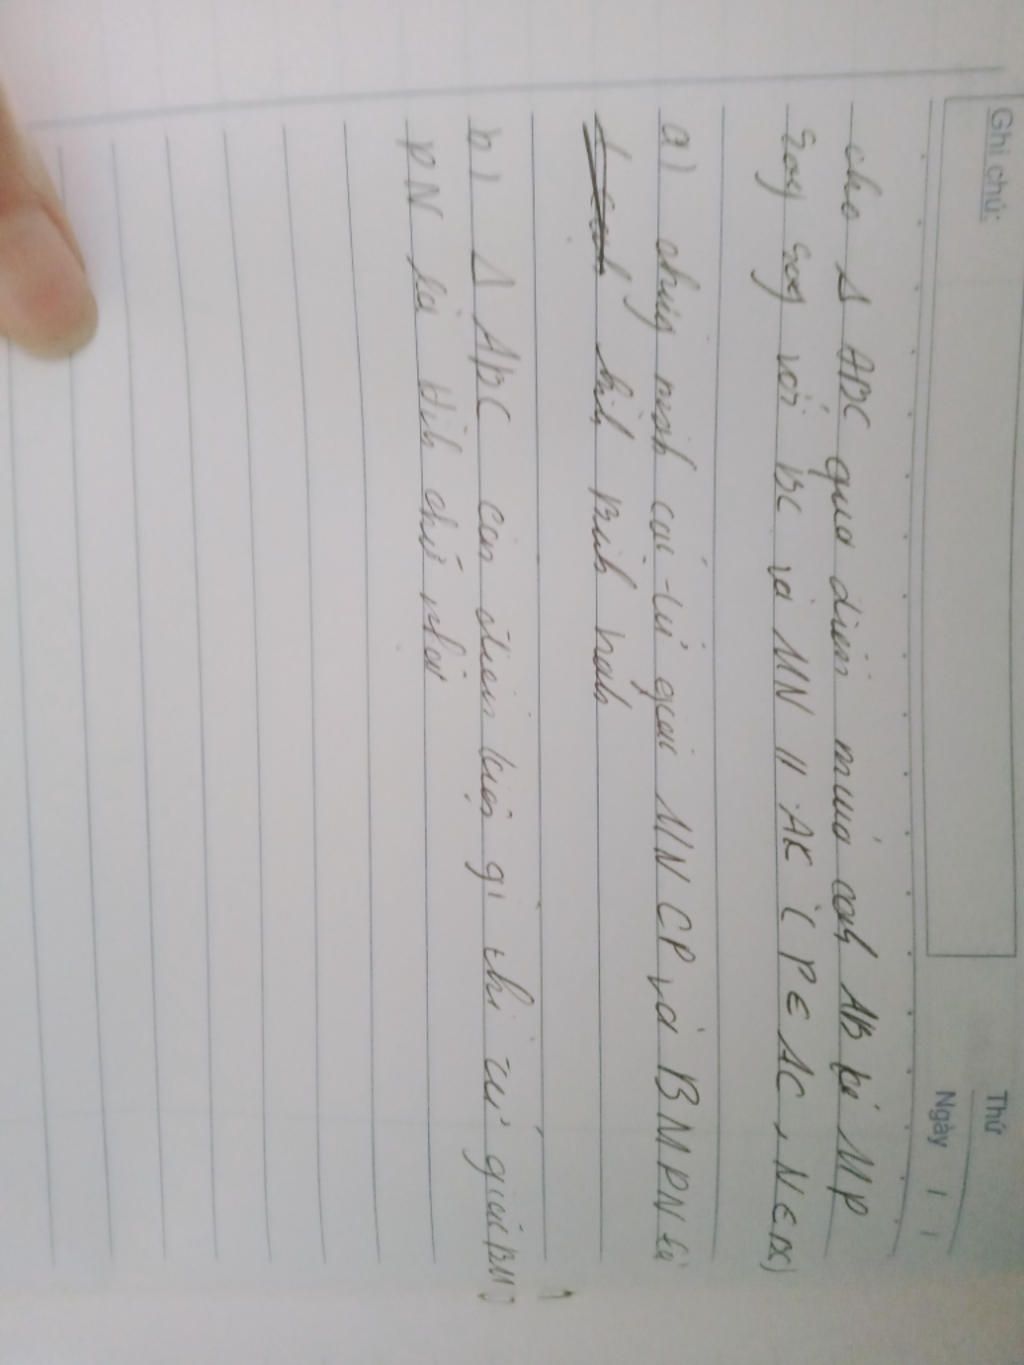 Ghi chú:
Thứ
Ngày
cho Δ ABC qua điểm M của cạnh AB kẻ MP
song song với BC và MN // AK ( P ∈ AC , N ∈ BC)
a) chứng minh các tứ giác MNCP và BMPN là
hình bình hành
b) Δ ABC cần điều kiện gì thì tứ giác BM
PN là hình chữ nhật